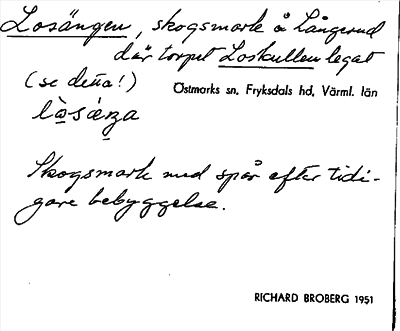 Losängen, skogsmark å Långerud
där torpet Loskullen legat
(se detta!) Östmarks sn, Fryksdals hd, Värml. län
Skogsmark med spår efter tidi-
gare bebyggelse.
RICHARD BROBERG 1951